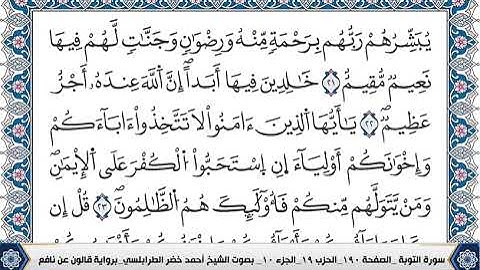 يُبَشِّرُهُمْ رَبُّهُم بِرَحْمَةٍ مِّنْهُ وَرِضْوَانٍ وَجَنَّاتٍ لَّهُمْ فِيهَا
نَعِيمٌ مُّقِيمٌ ٢١ خَالِدِينَ فِيهَا أَبَداًۖ إِنَّ اَ۬للَّهَ عِندَهُۥ أَجْرٌ
عَظِيمٌۖ ٢٢ يَا أَيُّهَا اَ۬لذِينَ ءَامَنُواْ لَا تَتَّخِذُواْ ءَابَآءَكُمْ
وَإِخْوَانَكُمْ أَوْلِيَآءَ انِ اِ۪سْتَحَبُّواْ اُ۬لْكُفْرَ عَلَى اَ۬لْإِيمَانِۖ
وَمَنْ يَّتَوَلَّهُم مِّنكُمْ فَأُوْلَٰٓئِكَ هُمُ اُ۬لظَّالِمُونَۖ ٢٣ قُلْ إِن
سورة التوبة _الصفحة ١٩٠_ الحزب ١٩_ الجزء ١٠_ بصوت الشيخ أحمد خضر الطرابلسي_ برواية قالون عن نافع